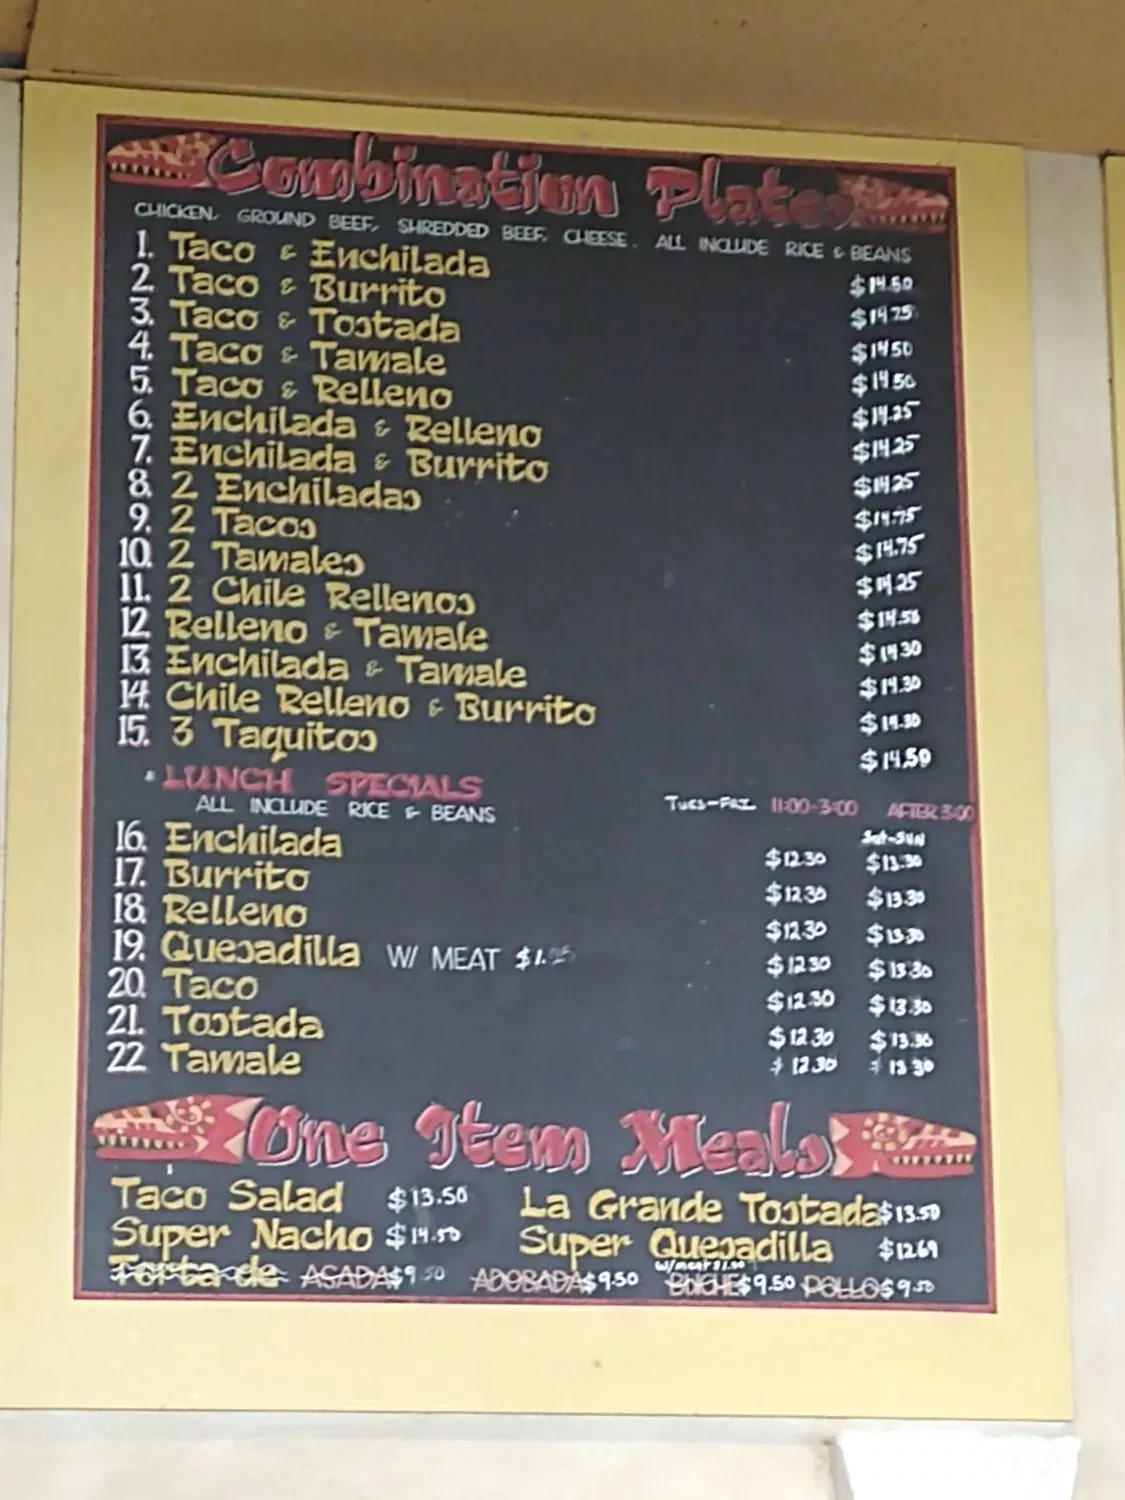 Combination Plates
CHICKEN, GROUND BEEF, SHREDDED BEEF, CHEESE. ALL INCLUDE RICE & BEANS
1. Taco & Enchilada $14.50
2. Taco & Burrito $14.75
3. Taco & Tostada $14.50
4. Taco & Tamale $14.50
5. Taco & Relleno $14.25
6. Enchilada & Relleno $14.25
7. Enchilada & Burrito $14.25
8. 2 Enchiladas $14.75
9. 2 Tacos $14.75
10. 2 Tamales $14.25
11. 2 Chile Rellenos $14.50
12. Relleno & Tamale $14.30
13. Enchilada & Tamale $14.30
14. Chile Relleno & Burrito $14.30
15. 3 Taquitos $14.50
LUNCH SPECIALS
ALL INCLUDE RICE & BEANS TUES-FRI 11:00-3:00 AFTER 3:00
Sat-Sun
16. Enchilada $12.30 $13.30
17. Burrito $12.30 $13.30
18. Relleno $12.30 $13.30
19. Quesadilla W/ MEAT $12.30 $13.30
20. Taco $12.30 $13.30
21. Tostada $12.30 $13.30
22. Tamale $12.30 $13.30
One Item Meals
Taco Salad $13.50 La Grande Tostada $13.50
Super Nacho $14.50 Super Quesadilla $12.69
w/meat $1.00
Torta de ASADA $9.50 ADOBADA $9.50 BUCHE $9.50 POLLO $9.50